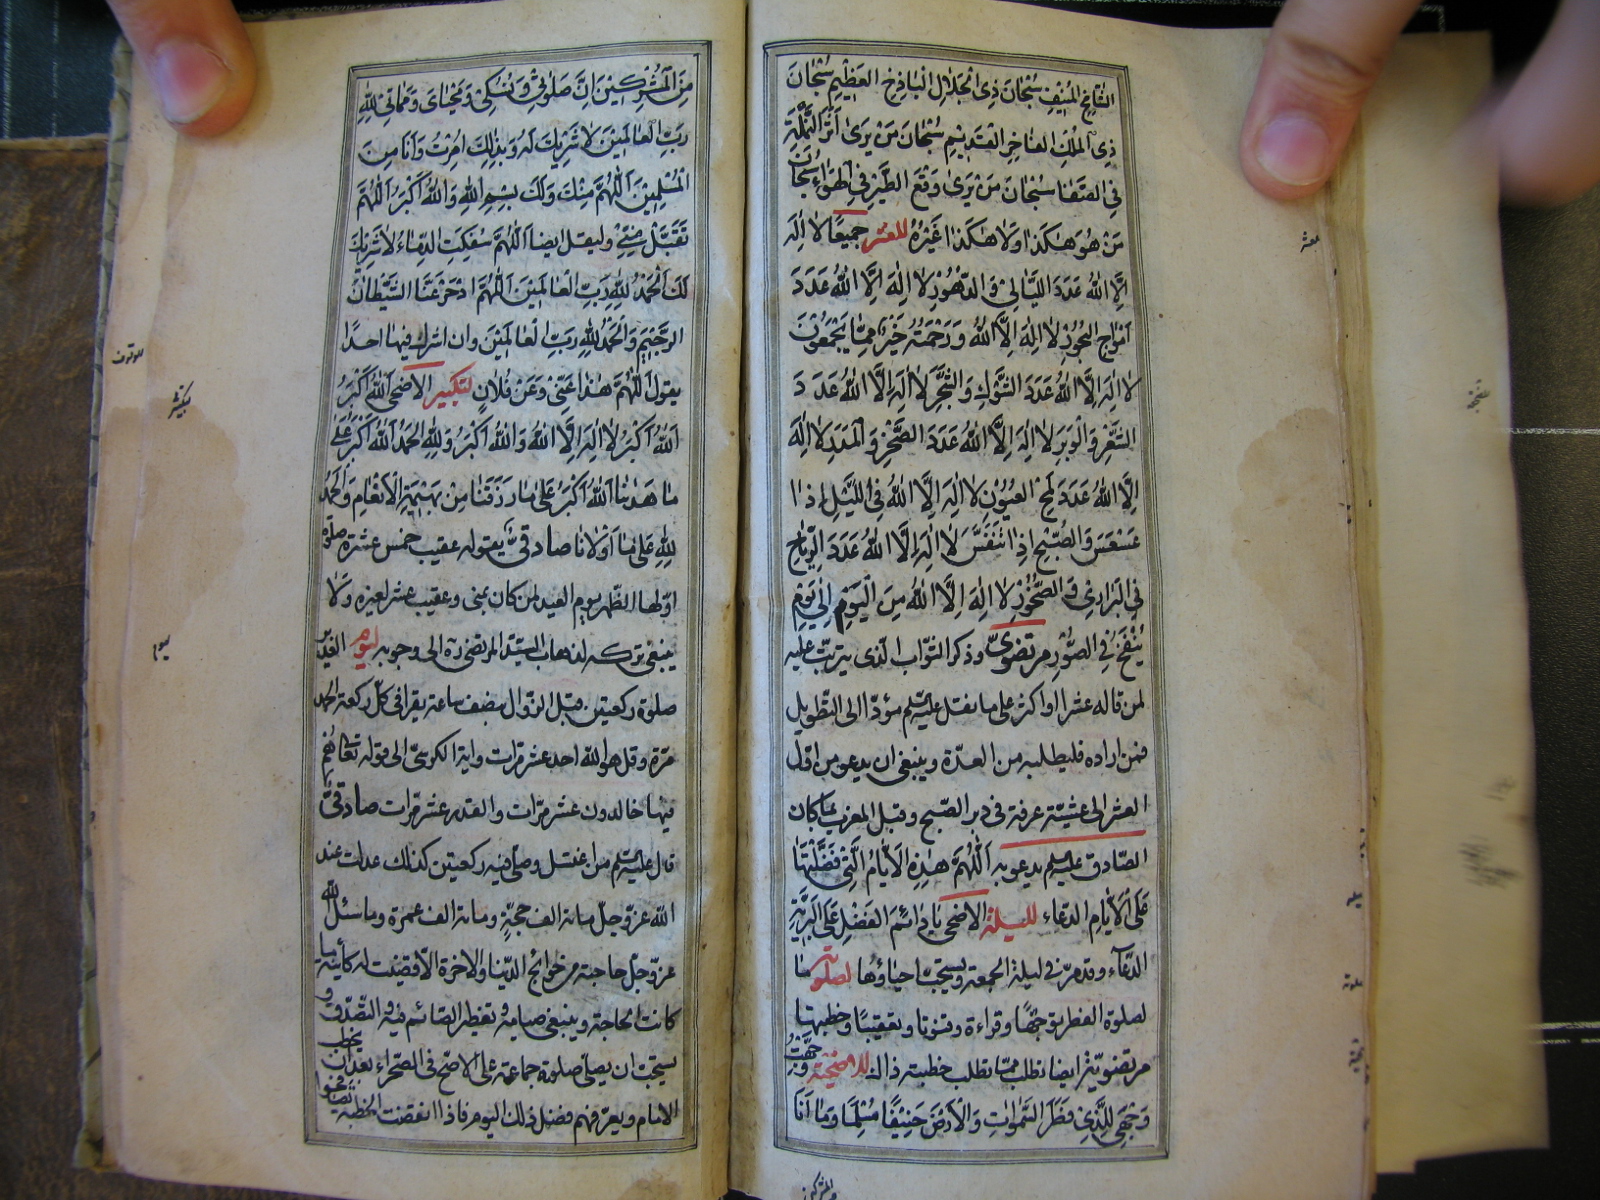 الشامخ المنيف سبحان ذي الجلال الباذخ العظيم سبحان
ذي الملك الفاخر القديم سبحان من يرى أثر النملة
في الصفا سبحان من يرى وقع الطير في الهواء سبحان
من هو هكذا ولا هكذا غيره للعشر جميعا لا إله
إلا الله عدد الليالي والدهور لا إله إلا الله عدد
أمواج البحور لا إله إلا الله ورحمته خير مما يجمعون
لا إله إلا الله عدد الشوك والشجر لا إله إلا الله عدد
الشعر والوبر لا إله إلا الله عدد الصخر والمدر لا إله
إلا الله عدد لمح العيون لا إله إلا الله في الليل إذا
عسعس والصبح إذا تنفس لا إله إلا الله عدد الرياح
في البراري والصخور لا إله إلا الله من اليوم إلى يوم
ينفخ في الصور مرتضوي وذكر الثواب الذي يترتب عليه
لمن قاله عشرا أو أكثر على ما نقل عليه السلم مؤد إلى التطويل
فمن أراده فليطلبه من العدة وينبغي أن يدعو من أول
العشر إلى عشية عرفة في دبر الصبح وقبل المغرب بما كان
الصادق عليه السلم يدعو به اللهم هذه الأيام التي فضلتها
على الأيام الدعاء لليلة الأضحى يا دائم الفضل على البرية
الدعاء وقد مر في ليلة الجمعة ويستحب إحياؤها لصلوته ما
لصلوة الفطر توجها وقراءة وقنوتا وتعقيبا وخطبتها
مرتضوية أيضا تطلب مما تطلب خطبته ذاك للاضحية وجهت
وجهي للذي فطر السموات والأرض حنيفا مسلما وما أنا
من المشركين إن صلوتي ونسكي ومحياي ومماتي لله
رب العالمين لا شريك له وبذلك أمرت وأنا من
المسلمين اللهم منك ولك بسم الله والله أكبر اللهم
تقبل مني وليقل أيضا اللهم سفكت الدماء لا شريك
لك الحمد لله رب العالمين اللهم ادحر عنا الشيطان
الرجيم والحمد لله رب العالمين وإن أشرك فيها أحدا
يقول اللهم هذا عني وعن فلان لتكبير الأضحى الله أكبر
الله أكبر لا إله إلا الله والله أكبر ولله الحمد الله أكبر على
ما هدانا الله أكبر على ما رزقنا من بهيمة الأنعام والحمد
لله على ما أولانا صادقي يقوله عقيب خمس عشرة صلوة
أولها الظهر يوم العيد لمن كان بمنى وعقيب عشر لغيره ولا
ينبغي تركه لذهاب السيد المرتضى ره إلى وجوبه ليوم الغدير
صلوة ركعتين قبل الزوال بنصف ساعة يقرأ في كل ركعة الحمد
مرة وقل هو الله أحد عشر مرات وآية الكرسي إلى قوله تعالى هم
فيها خالدون عشر مرات والقدر عشر مرات صادقي
قال عليه السلم من اغتسل وصلى فيه ركعتين كذلك عدلت عند
الله عز وجل مائة ألف حجة ومائة ألف عمرة وما سئل الله
عز وجل حاجة من حوائج الدنيا والآخرة إلا قضيت له كائنة ما
كانت الحاجة وينبغي صيامه وتفطير الصائم فيه والتصدق و
يستحب أن يصلى صلوة جماعة على الأصح في الصحراء بعد أن يخطب
الإمام ويعرفهم فضل ذلك اليوم فإذا انقضت الخطبة تصافحوا